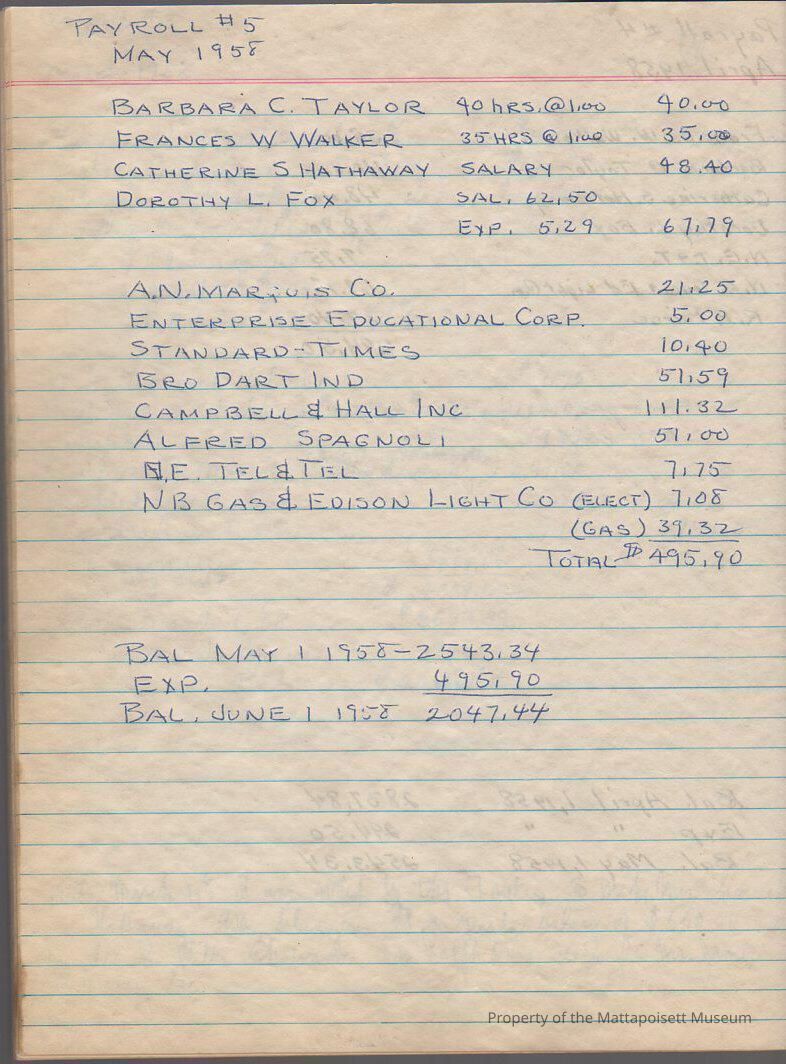 PAYROLL #5
MAY 1958
BARBARA C. TAYLOR 40 hRS.@1.00 40.00
FRANCES W WALKER 35 HRS @ 1.00 35.00
CATHERINE S HATHAWAY SALARY 48.40
DOROTHY L. FOX SAL. 62.50
EXP. 5.29 67.79
A.N. MARQUIS CO. 21.25
ENTERPRISE EDUCATIONAL CORP. 5.00
STANDARD-TIMES 10.40
BRO DART IND 51.59
CAMPBELL & HALL INC 111.32
ALFRED SPAGNOLI 51.00
N.E. TEL & TEL 7.75
NB GAS & EDISON LIGHT CO (ELECT) 7.08
(GAS) 39.32
TOTAL $495.90
BAL MAY 1 1958-2543.34
EXP. 495.90
BAL. JUNE 1 1958 2047.44
Property of the Mattapoisett Museum